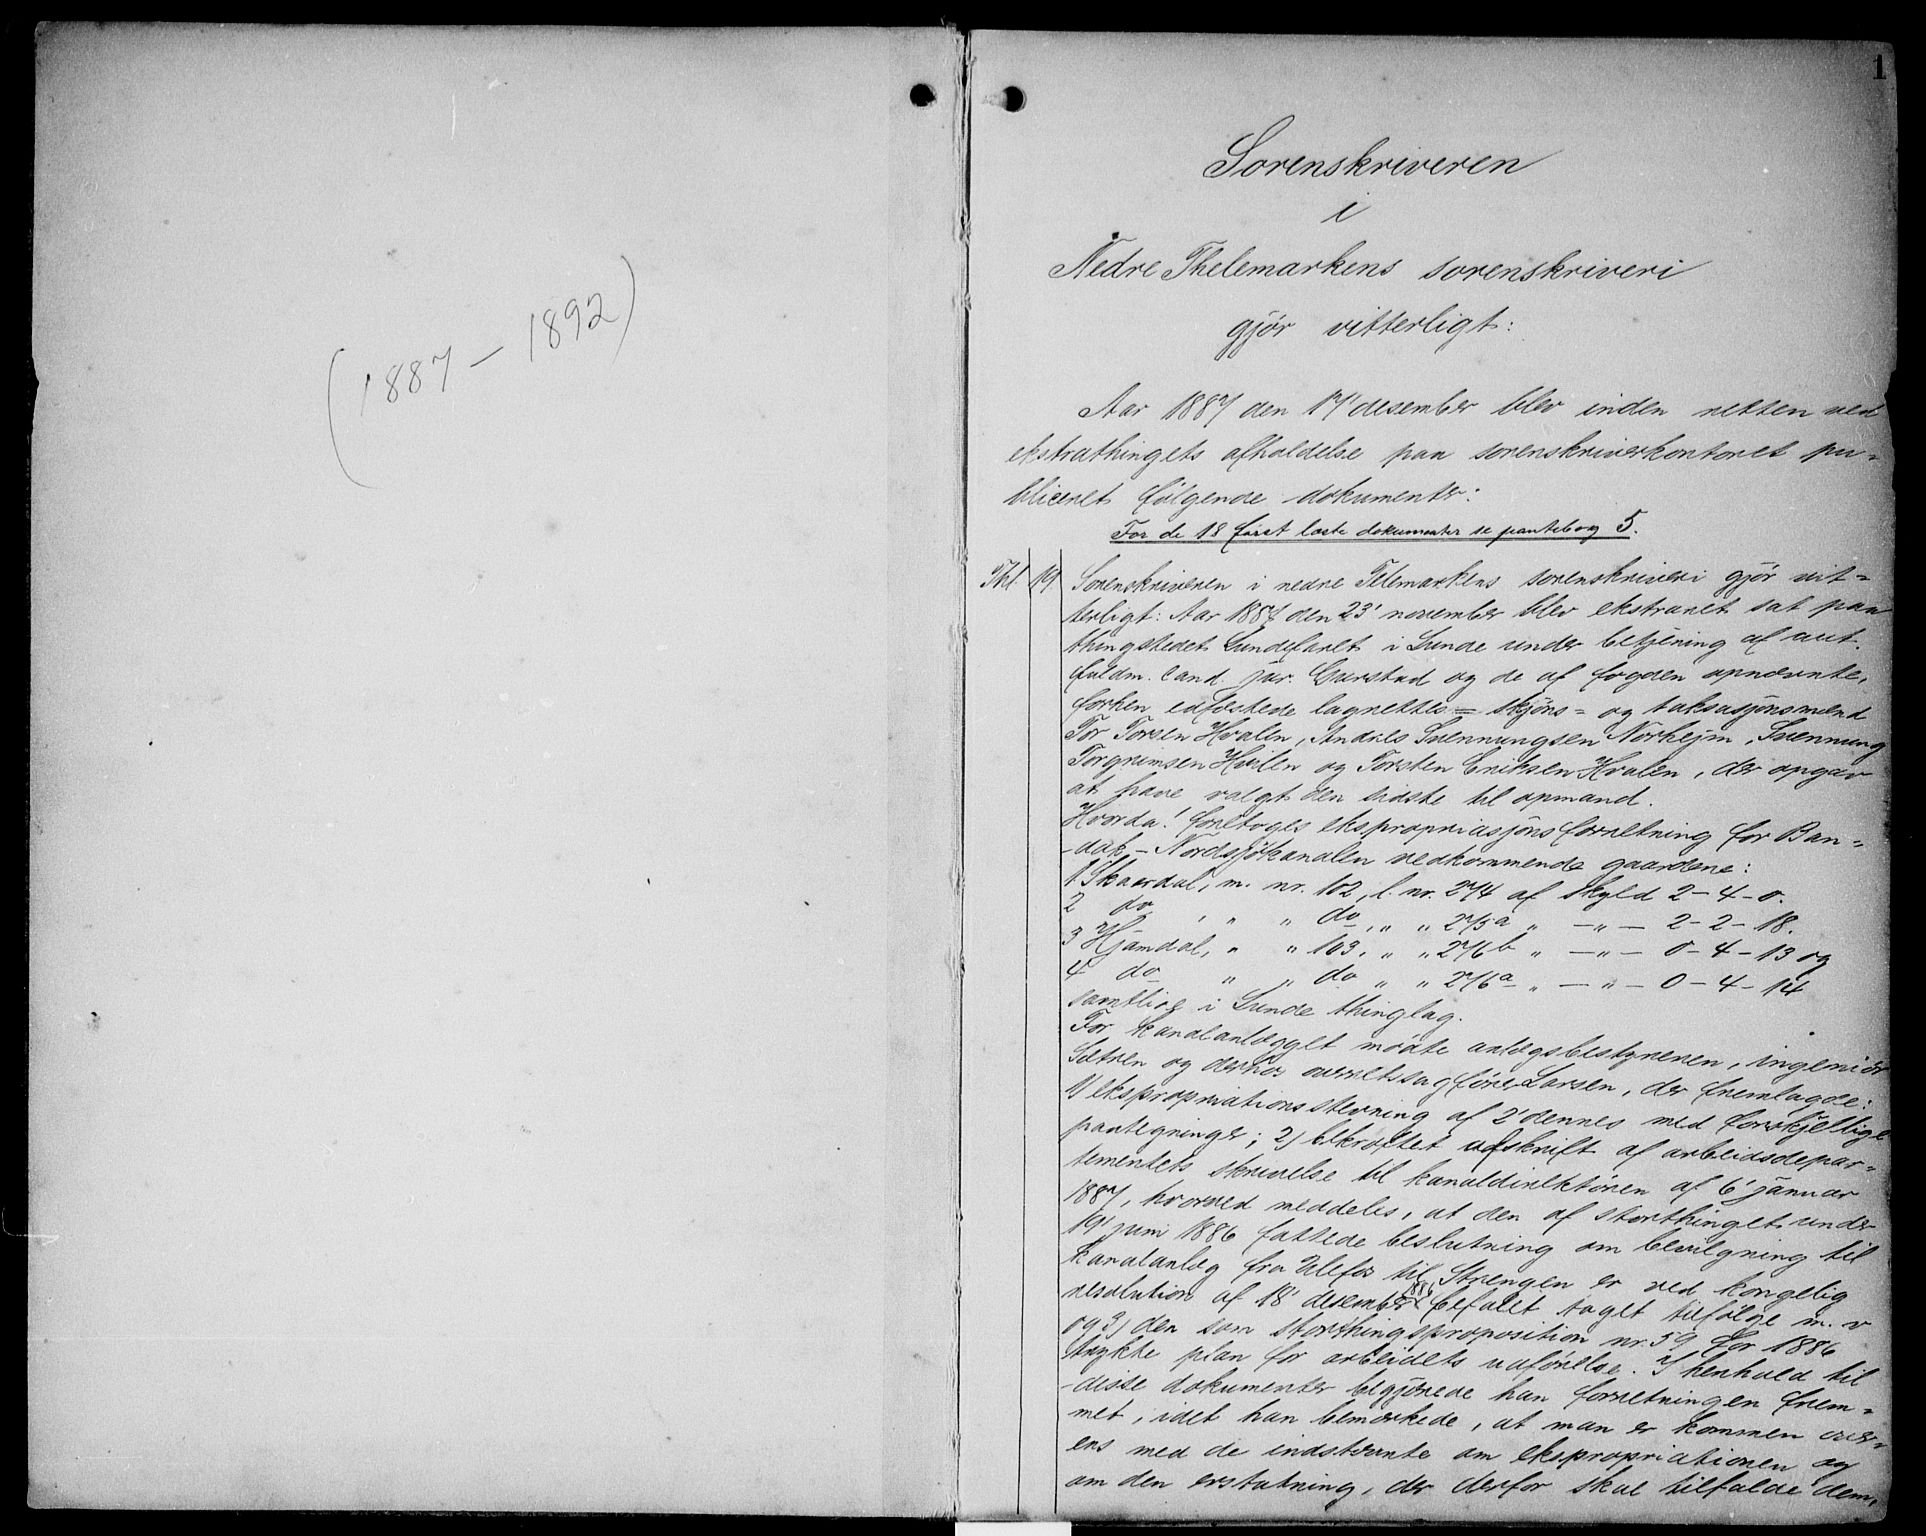 (1887 – 1892)
1
Sorenskriveren
i
Nedre Thelemarkens sorenskriveri
gjør vitterligt:
Aar 1887 den 17' desember blev inden retten ved
ekstrathingets afholdelse paa sorenskriverkontoret pu=
bliceret følgende dokumenter:
For de 18 først læste dokumenter se pantebog 5.
Thl. 19. Sorenskriveren i nedre Telemarkens sorenskriveri gjör vit=
terligt: Aar 1887 den 23' november blev ekstraret sat paa
thingstedet Lundefaret i Lunde under betjening af aut.
fuldm. cand. jur. Gurstad og de af fogden opnævnte,
forhen edfæstede lagrettes= skjöns= og taksasjonsmænd
Tor Torsen Hvalen, Andres Svennungsen Norhejm, Svennung
Torgrimsen Hvalen og Torsten Eriksen Hvalen, der opgav
at have valgt den sidste til opmand.
Hvorda! foretoges ekspropriasjonsforretning for Ban=
dak – Nordsjökanalen vedkommende gaardene:
1 Skaardal, m. nr. 102, l. nr. 274 af skyld 2 – 4 – 0.
2 do , " " do , " " 275a " – " – 2 – 2 – 18.
3 Hjamdal, " " 103, " " 276b " – " – 0 – 4 – 13 og
4 do " " do " " 276a " – " – 0 – 4 – 14
samtlige i Lunde thinglag.
For kanalanlægget mödte anlægsbestyreren, ingeniör
Sætren og derhos overretssagförer Larsen, der fremlagde:
1) ekspropriationsstevning af 2' dennes med forskjellige
paategninger; 2) bekræftet udskrift af arbeidsdepar=
tementets skrivelse til kanaldirektören af 6' januar
1887, hvorved meddeles, at den af storthinget under
19' juni 1886 fattede beslutning om bevilgning til
kanalanlæg fra Ulefos til Strengen er ved kongelig
resolution af 18' desember 1886 befalet taget tilfölge m. v
og 3) den som storthingsproposition nr. 59 for 1886
trykte plan for arbeidets udförelse. I henhold til
disse dokumenter begjærede han forretningen frem=
met, idet han bemærkede, at man er kommen over=
ens med de indstevnte om ekspropriationen og
om den erstatning, der derfor skal tilfalde dem,